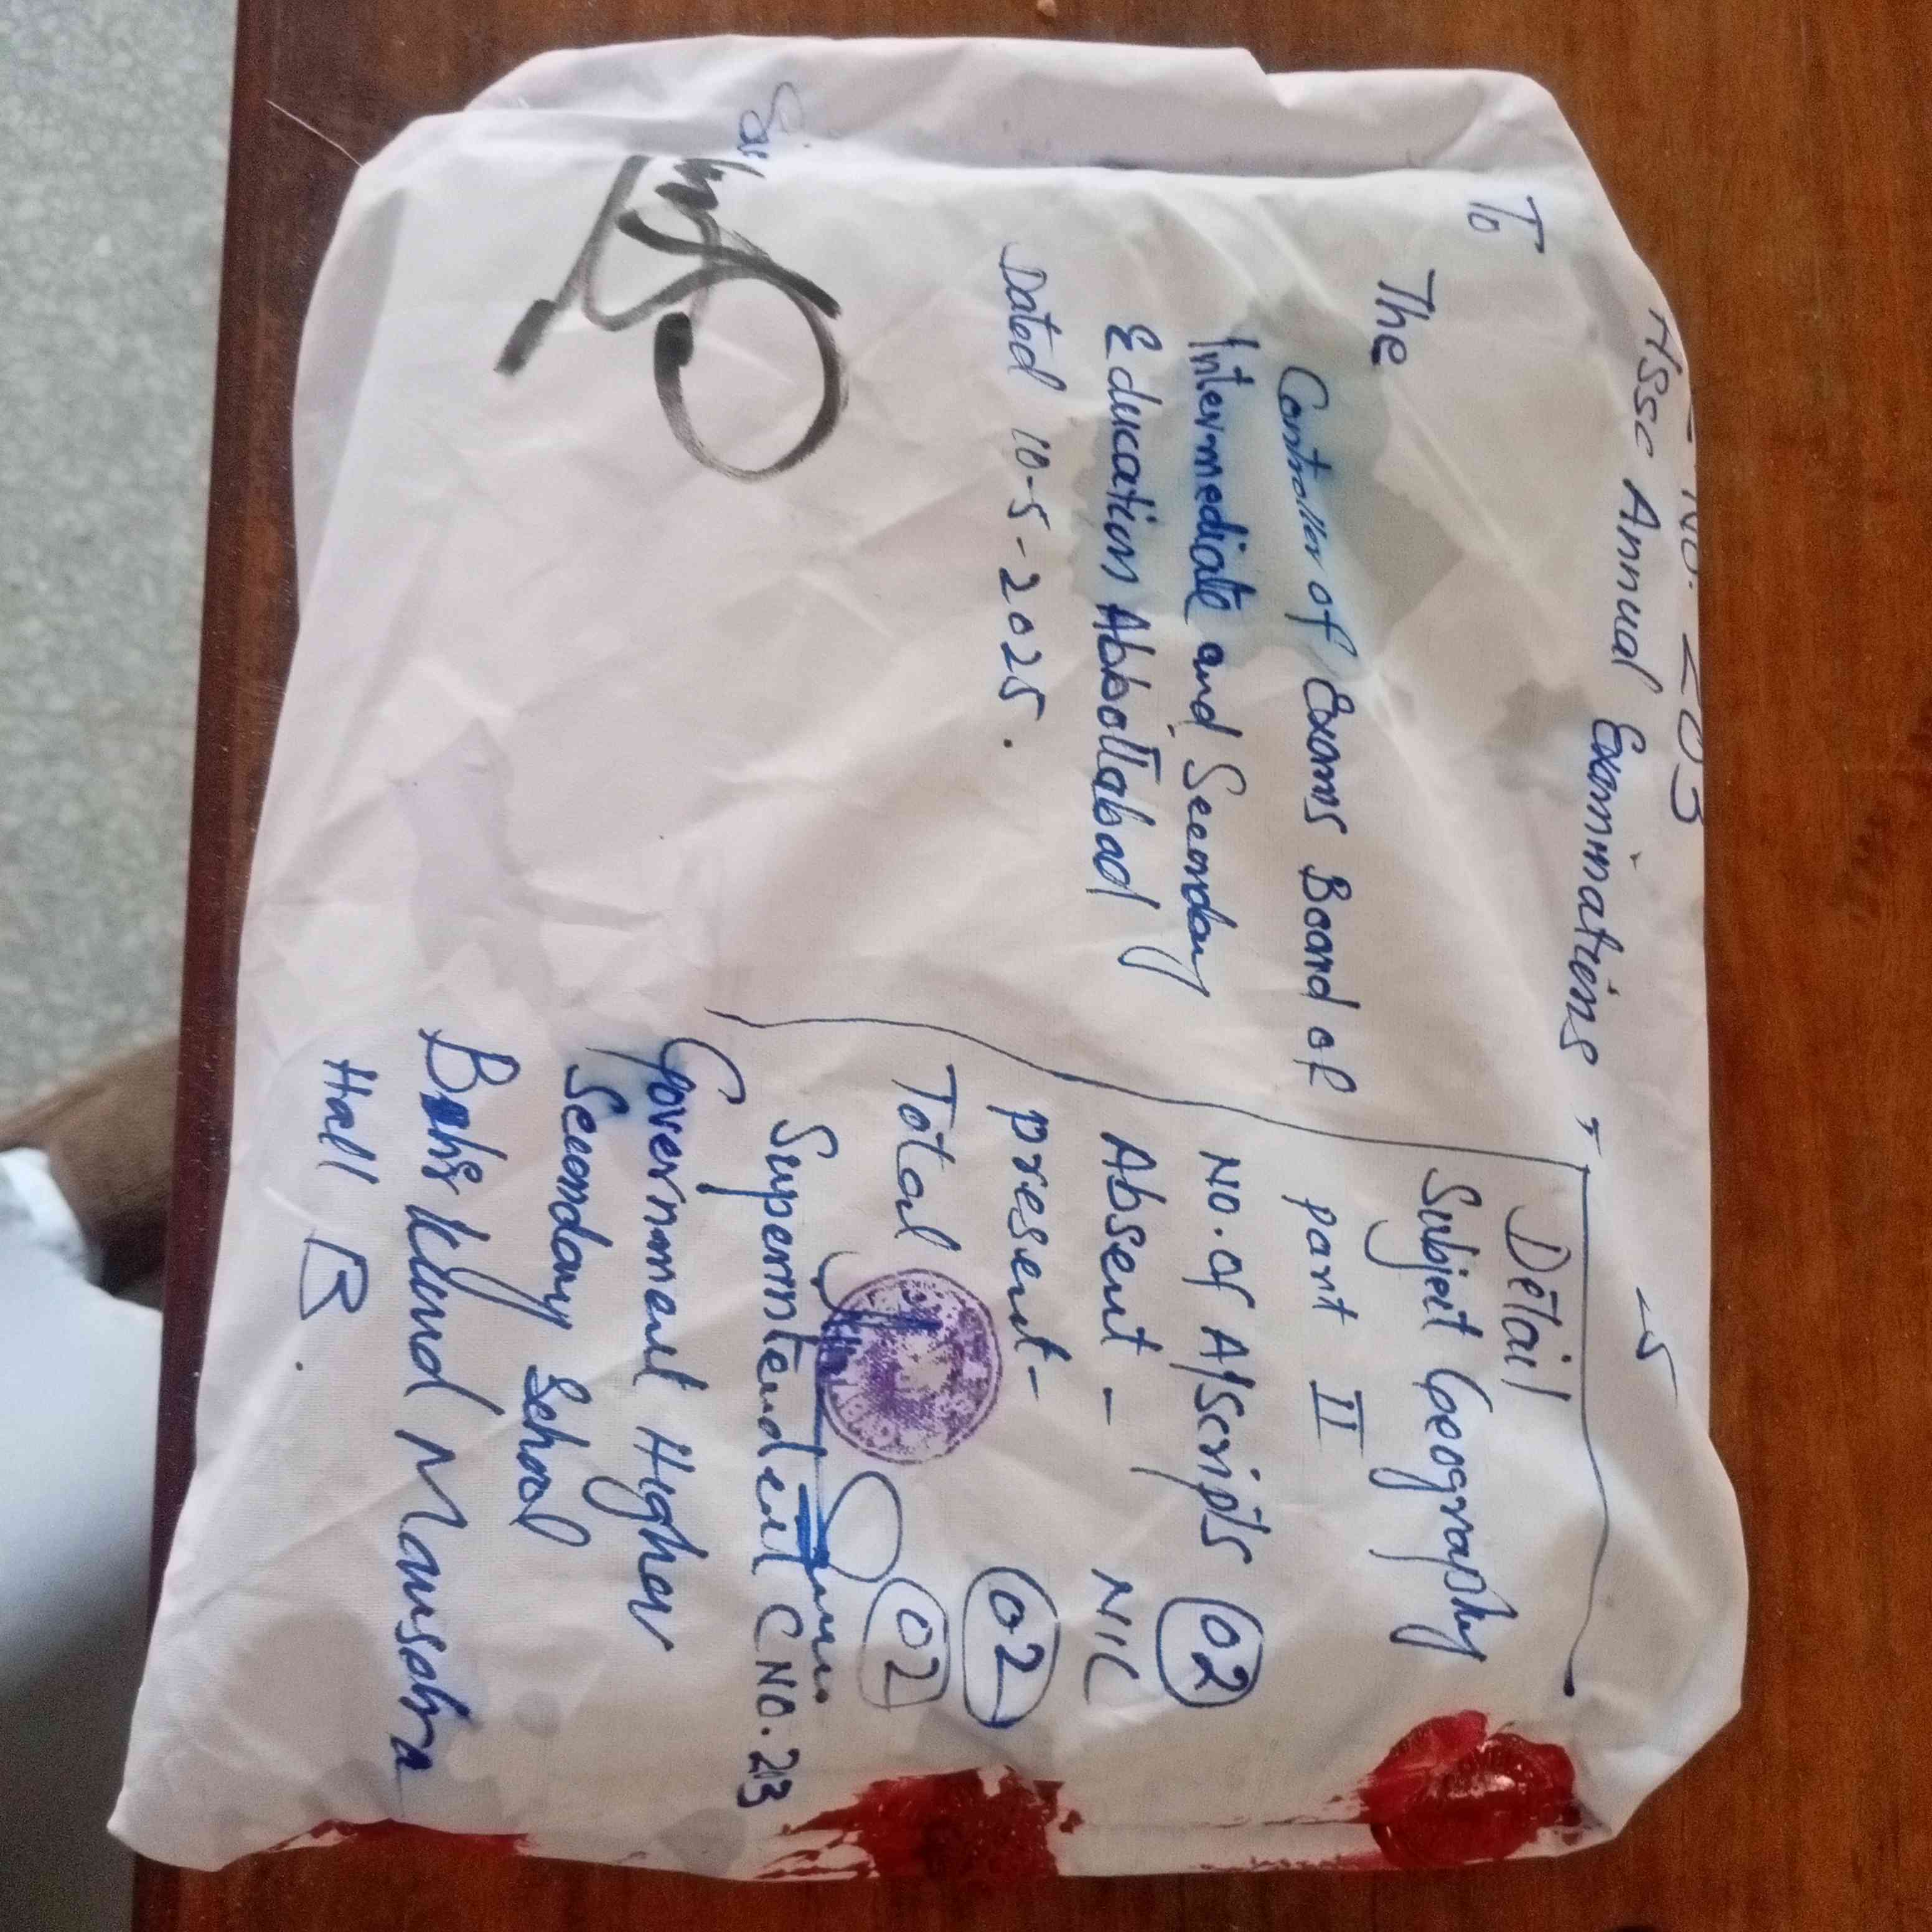 No. 203
HSSC Annual Examinations
To
The
Controller of Exams Board of
Intermediate and Secondary
Education Abbottabad
Dated 10-5-2025.
Detail
Subject Geography
part II
No. of A/Scripts 02
Absent - NIL
present - 02
Total 02
Superintendent C NO. 203
Government Higher
Secondary School
Kund Mansehra
Hall B.